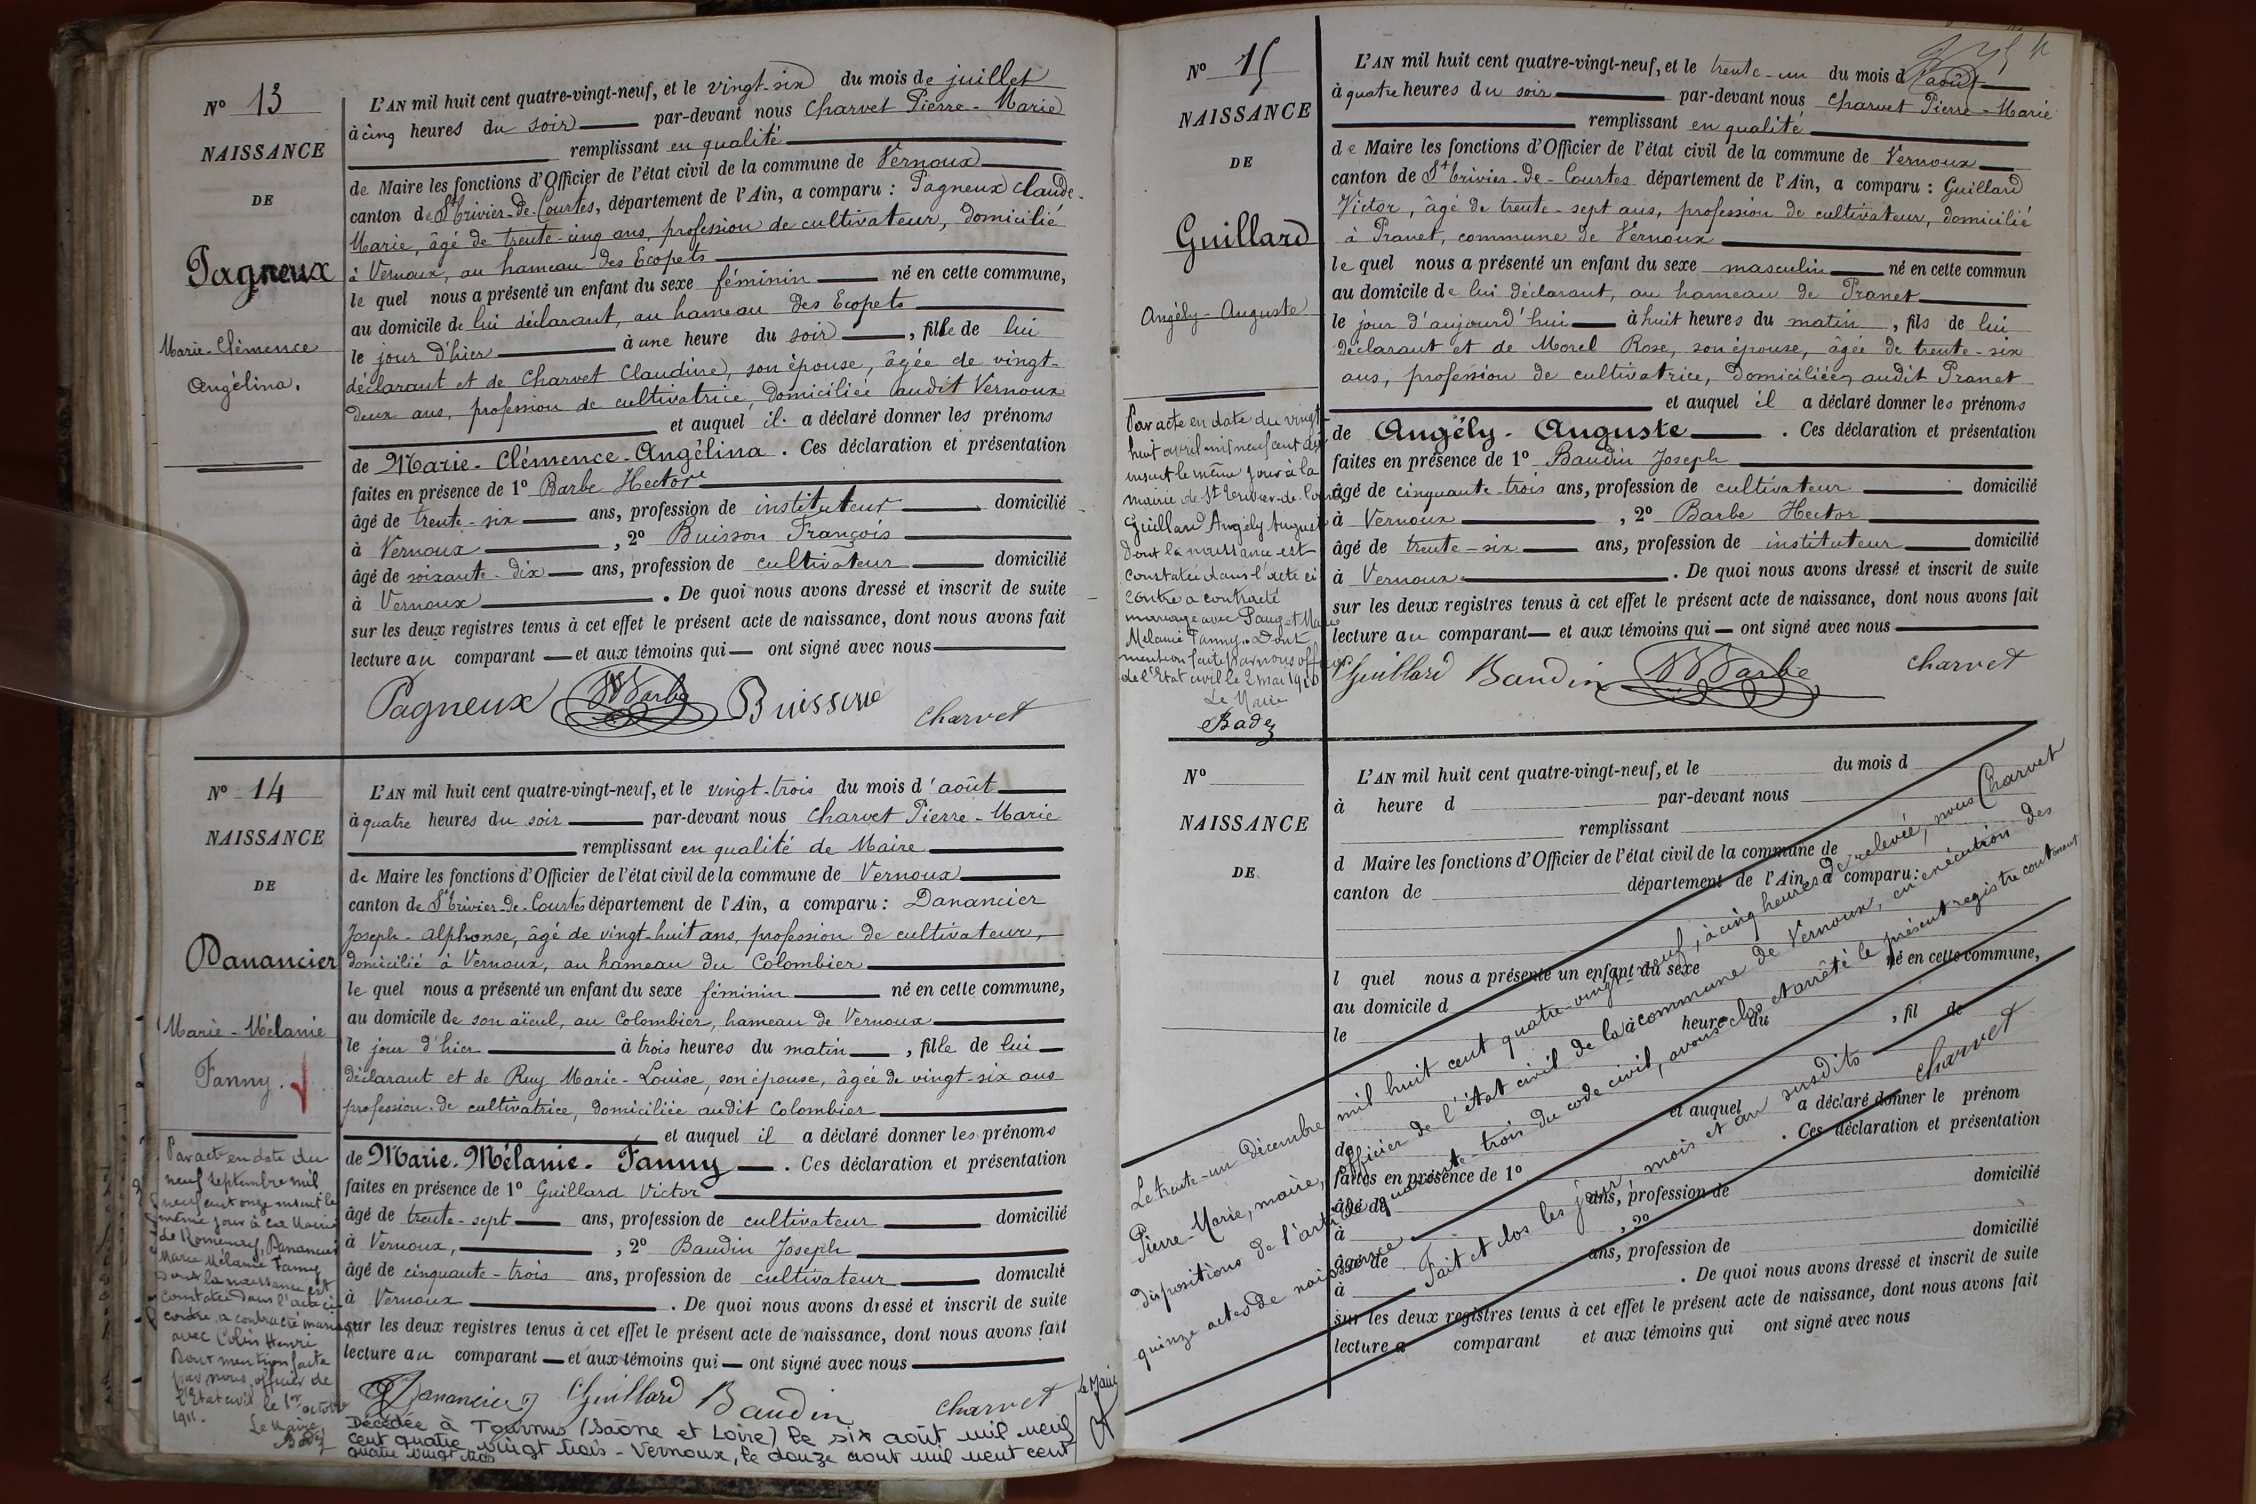 N° 13
NAISSANCE
DE
Pagneux
Marie-Clémence
Angélina.
L'AN mil huit cent quatre-vingt-neuf, et le vingt-six du mois de juillet
à cinq heures du soir par-devant nous Charvet Pierre-Marie
remplissant en qualité
de Maire les fonctions d'Officier de l'état civil de la commune de Vernoux
canton de St Trivier-de-Courtes, département de l'Ain, a comparu : Pagneux Claude-
Marie, âgé de trente-cinq ans, profession de cultivateur, domicilié
à Vernoux, au hameau des Ecopets
le quel nous a présenté un enfant du sexe féminin né en cette commune,
au domicile de lui déclarant, au hameau des Ecopets
le jour d'hier à une heure du soir, fille de lui
déclarant et de Charvet Claudine, son épouse, âgée de vingt-
deux ans, profession de cultivatrice, domiciliée audit Vernoux
et auquel il a déclaré donner les prénoms
de Marie-Clémence-Angélina. Ces déclaration et présentation
faites en présence de 1° Barbe Hector
âgé de trente-six ans, profession de instituteur domicilié
à Vernoux, 2° Buisson François
âgé de soixante-dix ans, profession de cultivateur domicilié
à Vernoux. De quoi nous avons dressé et inscrit de suite
sur les deux registres tenus à cet effet le présent acte de naissance, dont nous avons fait
lecture au comparant et aux témoins qui ont signé avec nous
Pagneux Barbe Buisson Charvet
N° 14
NAISSANCE
DE
Danancier
Marie-Mélanie
Fanny.
L'AN mil huit cent quatre-vingt-neuf, et le vingt-trois du mois d'août
à quatre heures du soir par-devant nous Charvet Pierre-Marie
remplissant en qualité de Maire
de Maire les fonctions d'Officier de l'état civil de la commune de Vernoux
canton de St Trivier-de-Courtes département de l'Ain, a comparu : Danancier
Joseph-Alphonse, âgé de vingt-huit ans, profession de cultivateur,
domicilié à Vernoux, au hameau du Colombier
le quel nous a présenté un enfant du sexe féminin né en cette commune,
au domicile de son aïeul, au Colombier, hameau de Vernoux
le jour d'hier à trois heures du matin, fille de lui
déclarant et de Ruy Marie-Louise, son épouse, âgée de vingt-six ans
profession de cultivatrice, domiciliée audit Colombier
et auquel il a déclaré donner les prénoms
de Marie-Mélanie-Fanny. Ces déclaration et présentation
faites en présence de 1° Guillard Victor
âgé de trente-sept ans, profession de cultivateur domicilié
à Vernoux, 2° Baudin Joseph
âgé de cinquante-trois ans, profession de cultivateur domicilié
à Vernoux. De quoi nous avons dressé et inscrit de suite
sur les deux registres tenus à cet effet le présent acte de naissance, dont nous avons fait
lecture au comparant et aux témoins qui ont signé avec nous
Danancier Guillard Baudin Charvet
Par acte en date du
neuf septembre mil
neuf cent onze inscrit le
même jour à la Mairie
de Romenay, Danancier
Marie Mélanie Fanny
dont la naissance est
constatée dans l'acte ci
contre, a contracté mariage
avec Colin Henri
Dont mention faite
par nous officier de
l'Etat civil le 1er octobre
1911.
Le Maire
Décédée à Tournus (Saône et Loire) le six août mil neuf
cent quatre vingt trois - Vernoux, le douze août mil neuf cent
quatre vingt trois
Le Maire
N° 15
NAISSANCE
DE
Guillard
Angély-Auguste
L'AN mil huit cent quatre-vingt-neuf, et le trente-un du mois d'août
à quatre heures du soir par-devant nous Charvet Pierre-Marie
remplissant en qualité
de Maire les fonctions d'Officier de l'état civil de la commune de Vernoux
canton de St Trivier-de-Courtes département de l'Ain, a comparu : Guillard
Victor, âgé de trente-sept ans, profession de cultivateur, domicilié
à Pranet, commune de Vernoux
le quel nous a présenté un enfant du sexe masculin né en cette commun
au domicile de lui déclarant, au hameau de Pranet
le jour d'aujourd'hui à huit heures du matin, fils de lui
déclarant et de Morel Rose, son épouse, âgée de trente-six
ans, profession de cultivatrice, domiciliée audit Pranet
et auquel il a déclaré donner les prénoms
de Angély-Auguste. Ces déclaration et présentation
faites en présence de 1° Baudin Joseph
âgé de cinquante-trois ans, profession de cultivateur domicilié
à Vernoux, 2° Barbe Hector
âgé de trente-six ans, profession de instituteur domicilié
à Vernoux. De quoi nous avons dressé et inscrit de suite
sur les deux registres tenus à cet effet le présent acte de naissance, dont nous avons fait
lecture au comparant et aux témoins qui ont signé avec nous
Guillard Baudin Barbe Charvet
Par acte en date du vingt
huit avril mil neuf cent dix
inscrit le même jour à la
mairie de St Trivier-de-Courtes
Guillard Angély Auguste
dont la naissance est
constatée dans l'acte ci
contre a contracté
mariage avec Pauget Marie
Mélanie Fanny. Dont
mention faite par nous officier
de l'Etat civil le 2 mai 1910
Le Maire
N°
NAISSANCE
DE
L'AN mil huit cent quatre-vingt-neuf, et le du mois d
à heure d par-devant nous
remplissant
d Maire les fonctions d'Officier de l'état civil de la commune de
canton de département de l'Ain, a comparu :
l quel nous a présenté un enfant du sexe né en cette commune,
au domicile d
le à heure du , fil de
et auquel a déclaré donner le prénom
de . Ces déclaration et présentation
faites en présence de 1°
âgé de ans, profession de domicilié
à , 2°
âgé de ans, profession de domicilié
à . De quoi nous avons dressé et inscrit de suite
sur les deux registres tenus à cet effet le présent acte de naissance, dont nous avons fait
lecture a comparant et aux témoins qui ont signé avec nous
Le trente-un décembre mil huit cent quatre-vingt-neuf, à cinq heures de relevée, nous Charvet
Pierre-Marie, maire, officier de l'état civil de la commune de Vernoux, en exécution des
dispositions de l'article quarante-trois du code civil, avons clos et arrêté le présent registre contenant
quinze actes de naissance Fait et clos les jour, mois et an susdits
Charvet